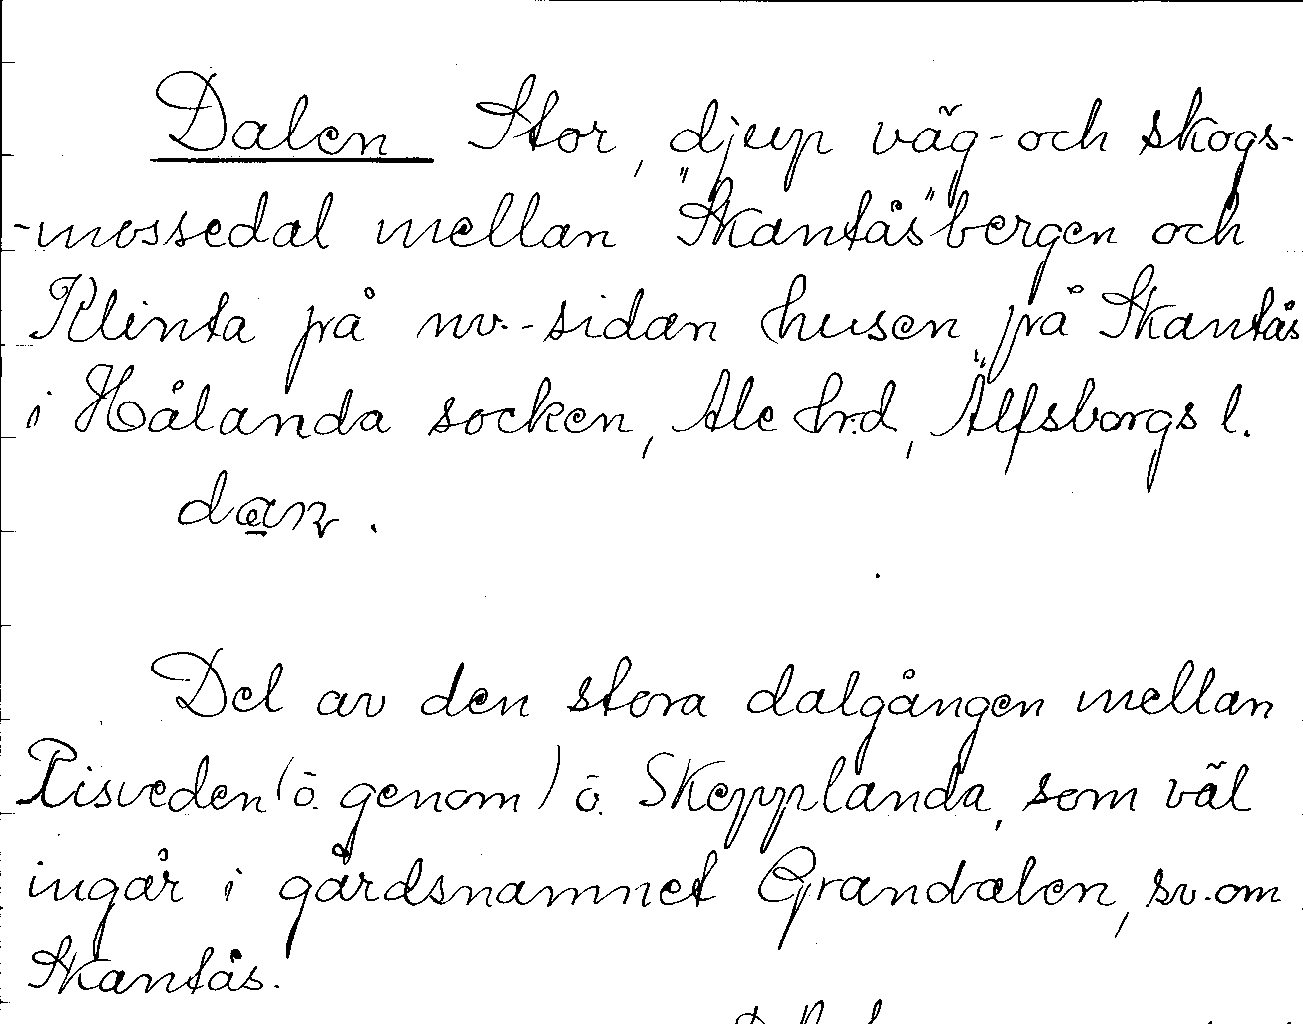 Dalen Stor, djup väg- och skogs-
-mossedal mellan "Skantås"bergen och
Klinta på nv.-sidan husen på Skantås
i Hålanda socken, Ale hrd, Älfsborgs l.
Del av den stora dalgången mellan
Risveden (ö. genom) ö. Skepplanda, som väl
ingår i gårdsnamnet Grandalen, sv. om
Skantås.